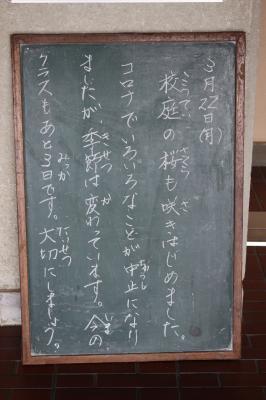 3月22日(月)
校庭の桜も咲きはじめました。
コロナでいろいろなことが中止になり
ましたが、季節は変わっています。今の
クラスもあと3日です。大切にしましょう。
こうてい さくら さ
ちゅうし
きせつ か いま
みっか たいせつ